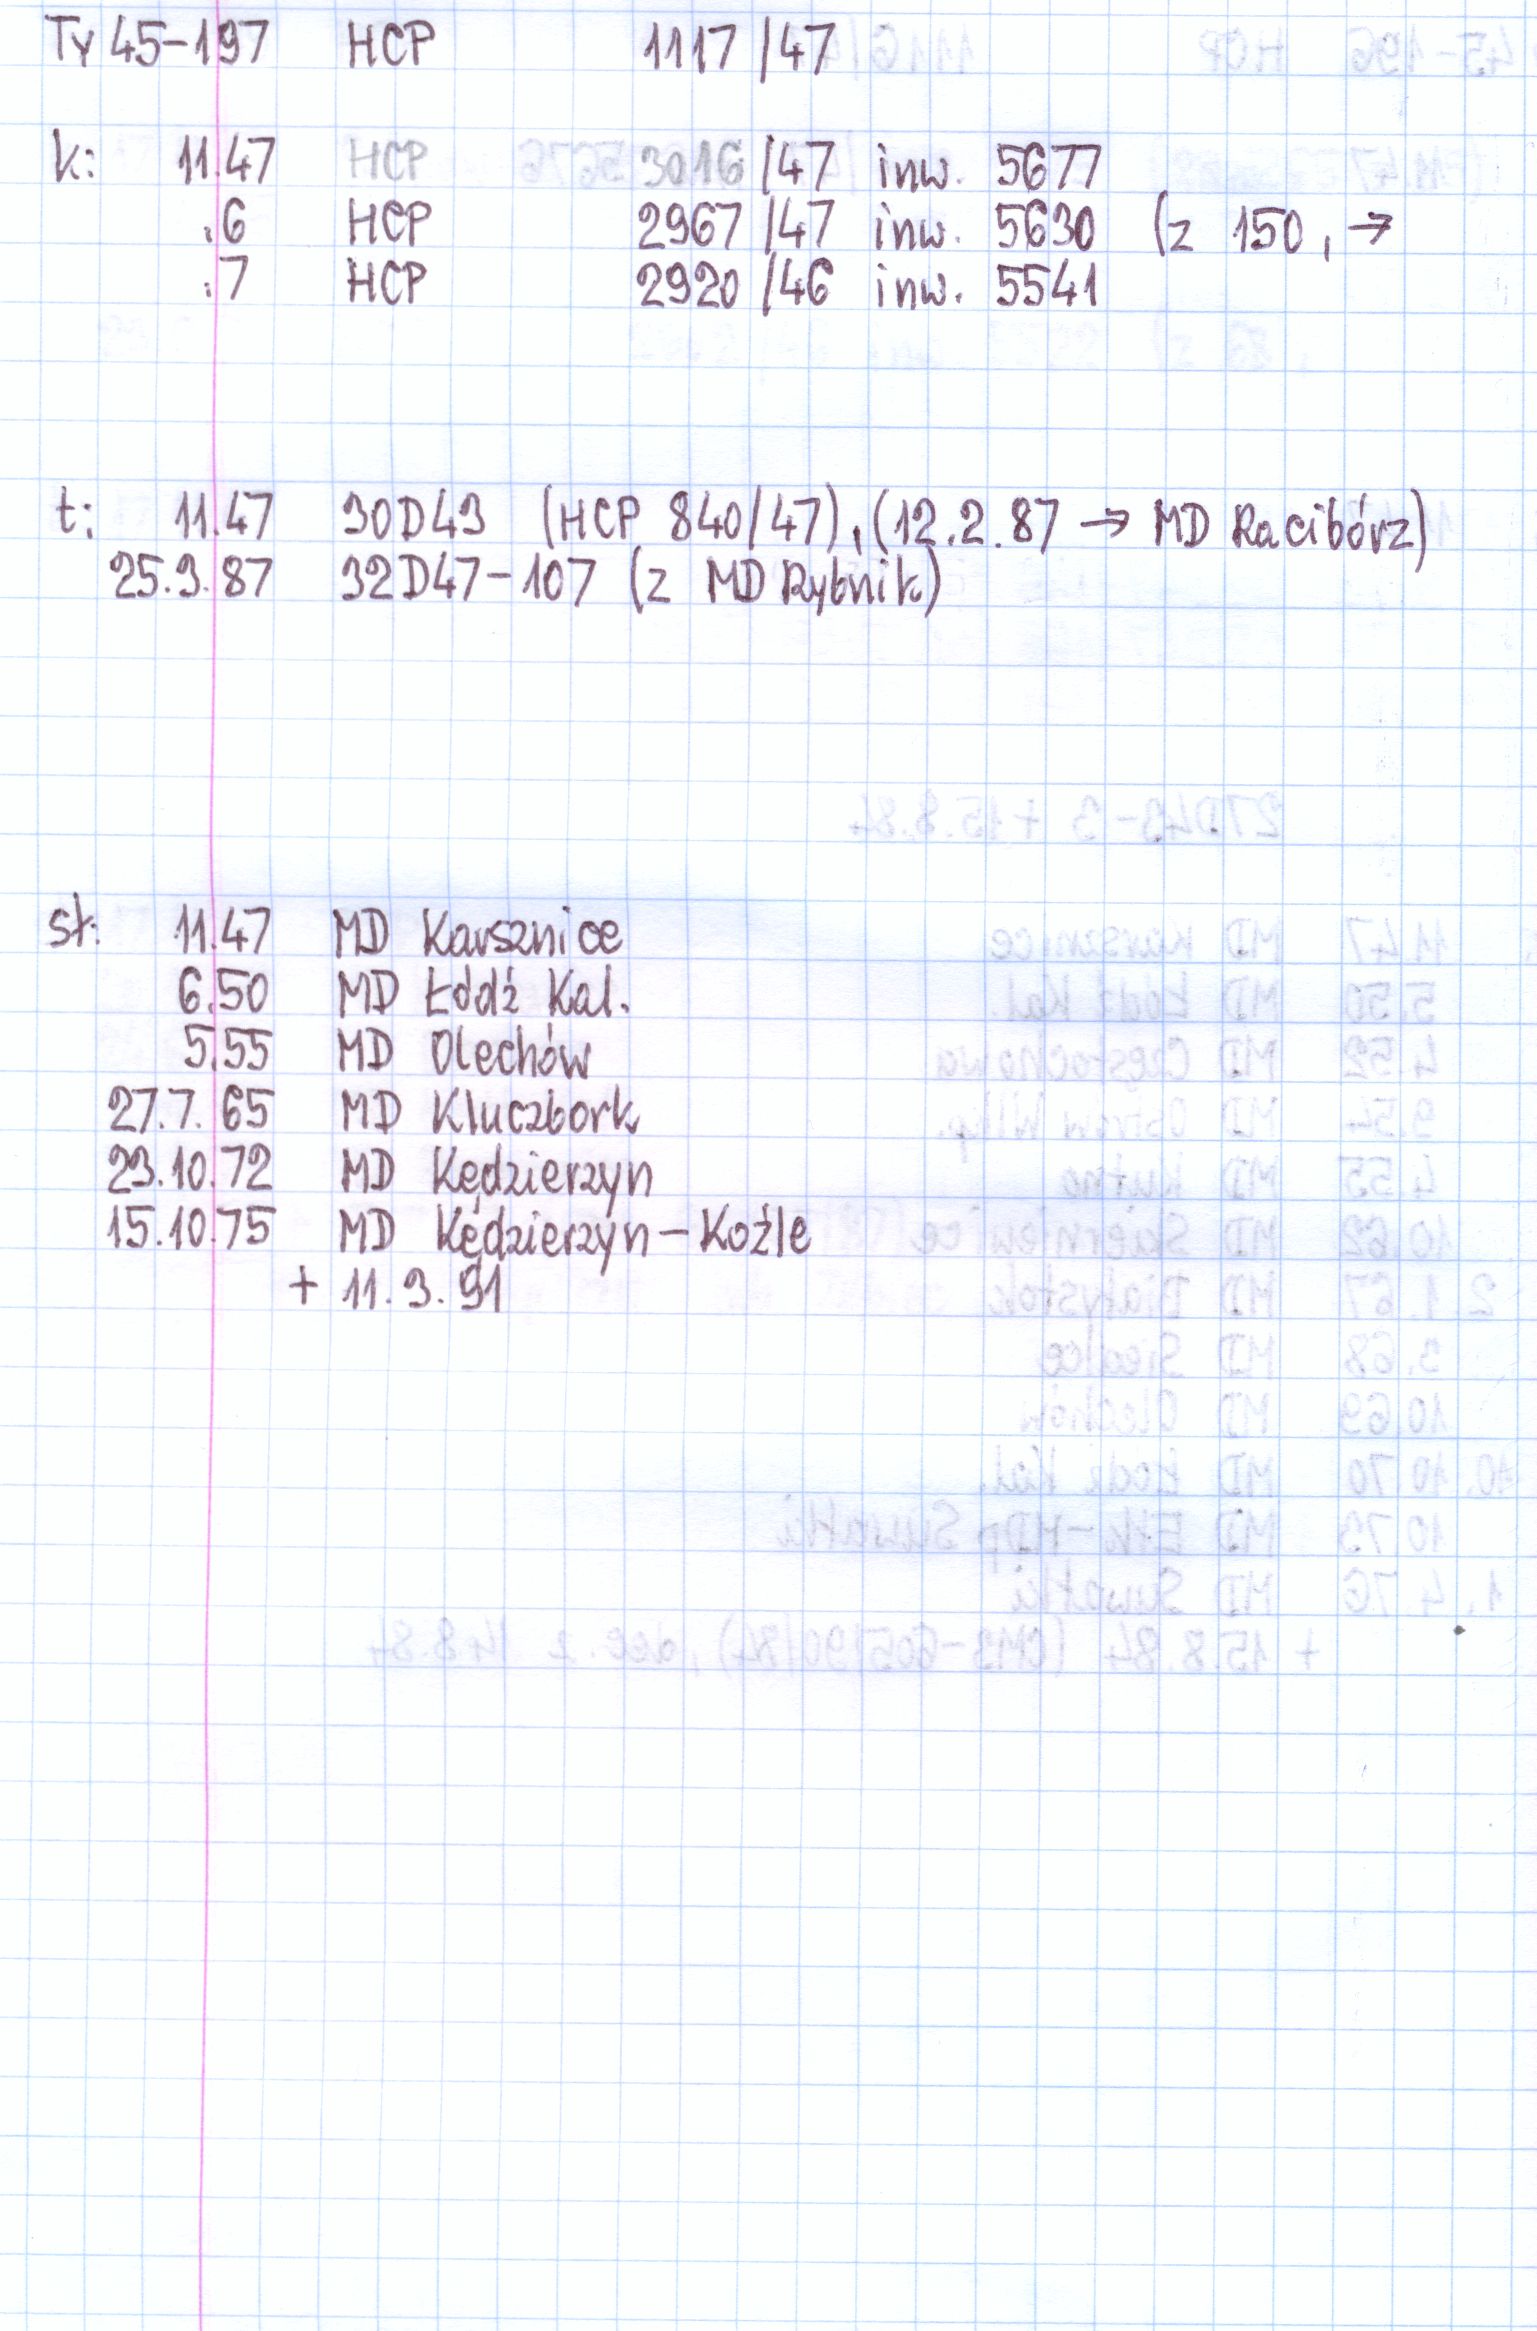 Ty 45-197 HCP 1117/47
k: 11.47 HCP 3016/47 inw. 5677
.6 HCP 2967/47 inw. 5630 (z 150, →
.7 HCP 2920/46 inw. 5541
t: 11.47 30D43 (HCP 840/47), (12.2.87 → MD Racibórz)
25.3.87 32D47-107 (z MD Rybnik)
st: 11.47 MD Karsznice
6.50 MD Łódź Kal.
5.55 MD Olechów
27.7.65 MD Kluczbork
23.10.72 MD Kędzierzyn
15.10.75 MD Kędzierzyn-Koźle
+ 11.3.91